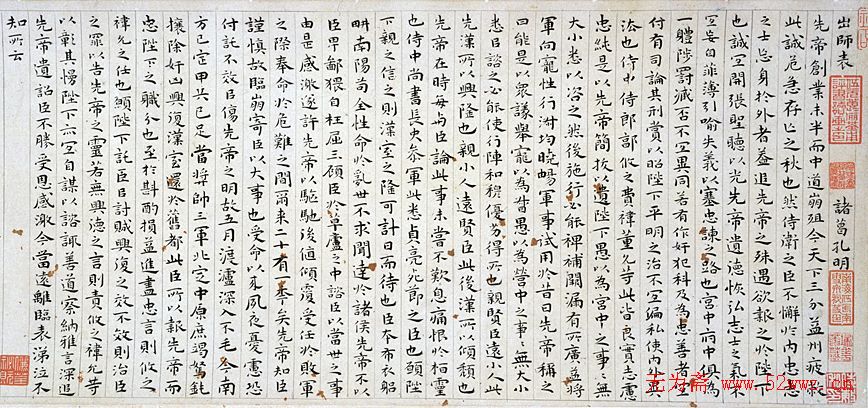 出師表 諸葛孔明
先帝創業未半而中道崩殂今天下三分益州疲敝
此誠危急存亡之秋也然侍衛之臣不懈於內忠志
之士忘身於外者蓋追先帝之殊遇欲報之於陛下
也誠宜開張聖聽以光先帝遺德恢弘志士之氣不
宜妄自菲薄引喻失義以塞忠諫之路也宮中府中俱為
一體陟罰臧否不宜異同若有作奸犯科及為忠善者宜
付有司論其刑賞以昭陛下平明之治不宜偏私使內外異
法也侍中侍郎郭攸之費禕董允等此皆良實志慮
忠純是以先帝簡拔以遺陛下愚以為宮中之事事無
大小悉以咨之然後施行必能裨補闕漏有所廣益將
軍向寵性行淑均曉暢軍事試用於昔日先帝稱之
曰能是以眾議舉寵以為督愚以為營中之事事無大小
悉以諮之必能使行陣和穆優劣得所也親賢臣遠小人此
先漢所以興隆也親小人遠賢臣此後漢所以傾頹也
先帝在時每與臣論此事未嘗不歎息痛恨於桓靈
也侍中尚書長史參軍此悉貞亮死節之臣也願陛
下親之信之則漢室之隆可計日而待也臣本布衣躬
耕南陽苟全性命於亂世不求聞達於諸侯先帝不以
臣卑鄙猥自枉屈三顧臣於草廬之中諮臣以當世之事
由是感激遂許先帝以驅馳後值傾覆受任於敗軍
之際奉命於危難之間爾來二十有一年矣先帝知臣
謹慎故臨崩寄臣以大事也受命以來夙夜憂慮恐
付託不效以傷先帝之明故五月渡瀘深入不毛今南
方已定甲兵已足當將帥三軍北定中原庶竭駑鈍
攘除奸凶興復漢室還於舊都此臣所以報先帝而
忠陛下之職分也至於斟酌損益進盡忠言則攸之
禕允之任也願陛下託臣以討賊興復之效不效則治臣
之罪以告先帝之靈若無興德之言則責攸之禕允等
以彰其慢陛下亦宜自謀以諮諏善道察納雅言深追
先帝遺詔臣不勝受恩感激今當遠離臨表涕泣不
知所云
无为斋 www.52wwz.com